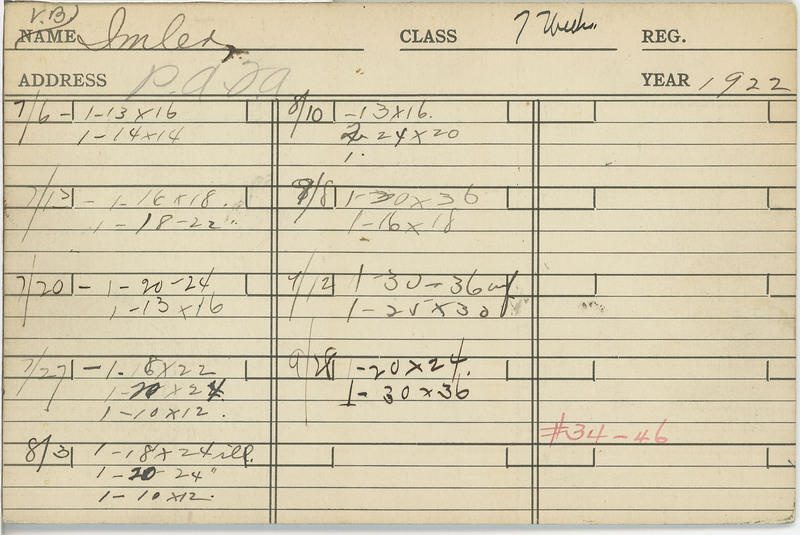 V.B.
NAME Imler CLASS 7 Weeks. REG.
ADDRESS P.A.F.A YEAR 1922
7/6 - 1-13 x 16
1-14 x 14
7/13 - 1-16 x 18.
1-18-22"
7/20 - 1-20-24
1-13 x 16
7/27 - 1. 18 x 22
1-20 x 24.
1-10 x 12.
8/3 1-18 x 24 ill.
1-20 24"
1-10 x 12.
8/10 -13 x 16.
24 x 20
1.
9/8 1-30 x 36
1-16 x 18
9/12 1-30-36
1-25 x 30
9/28 1-20 x 24.
1-30 x 36
#34-46